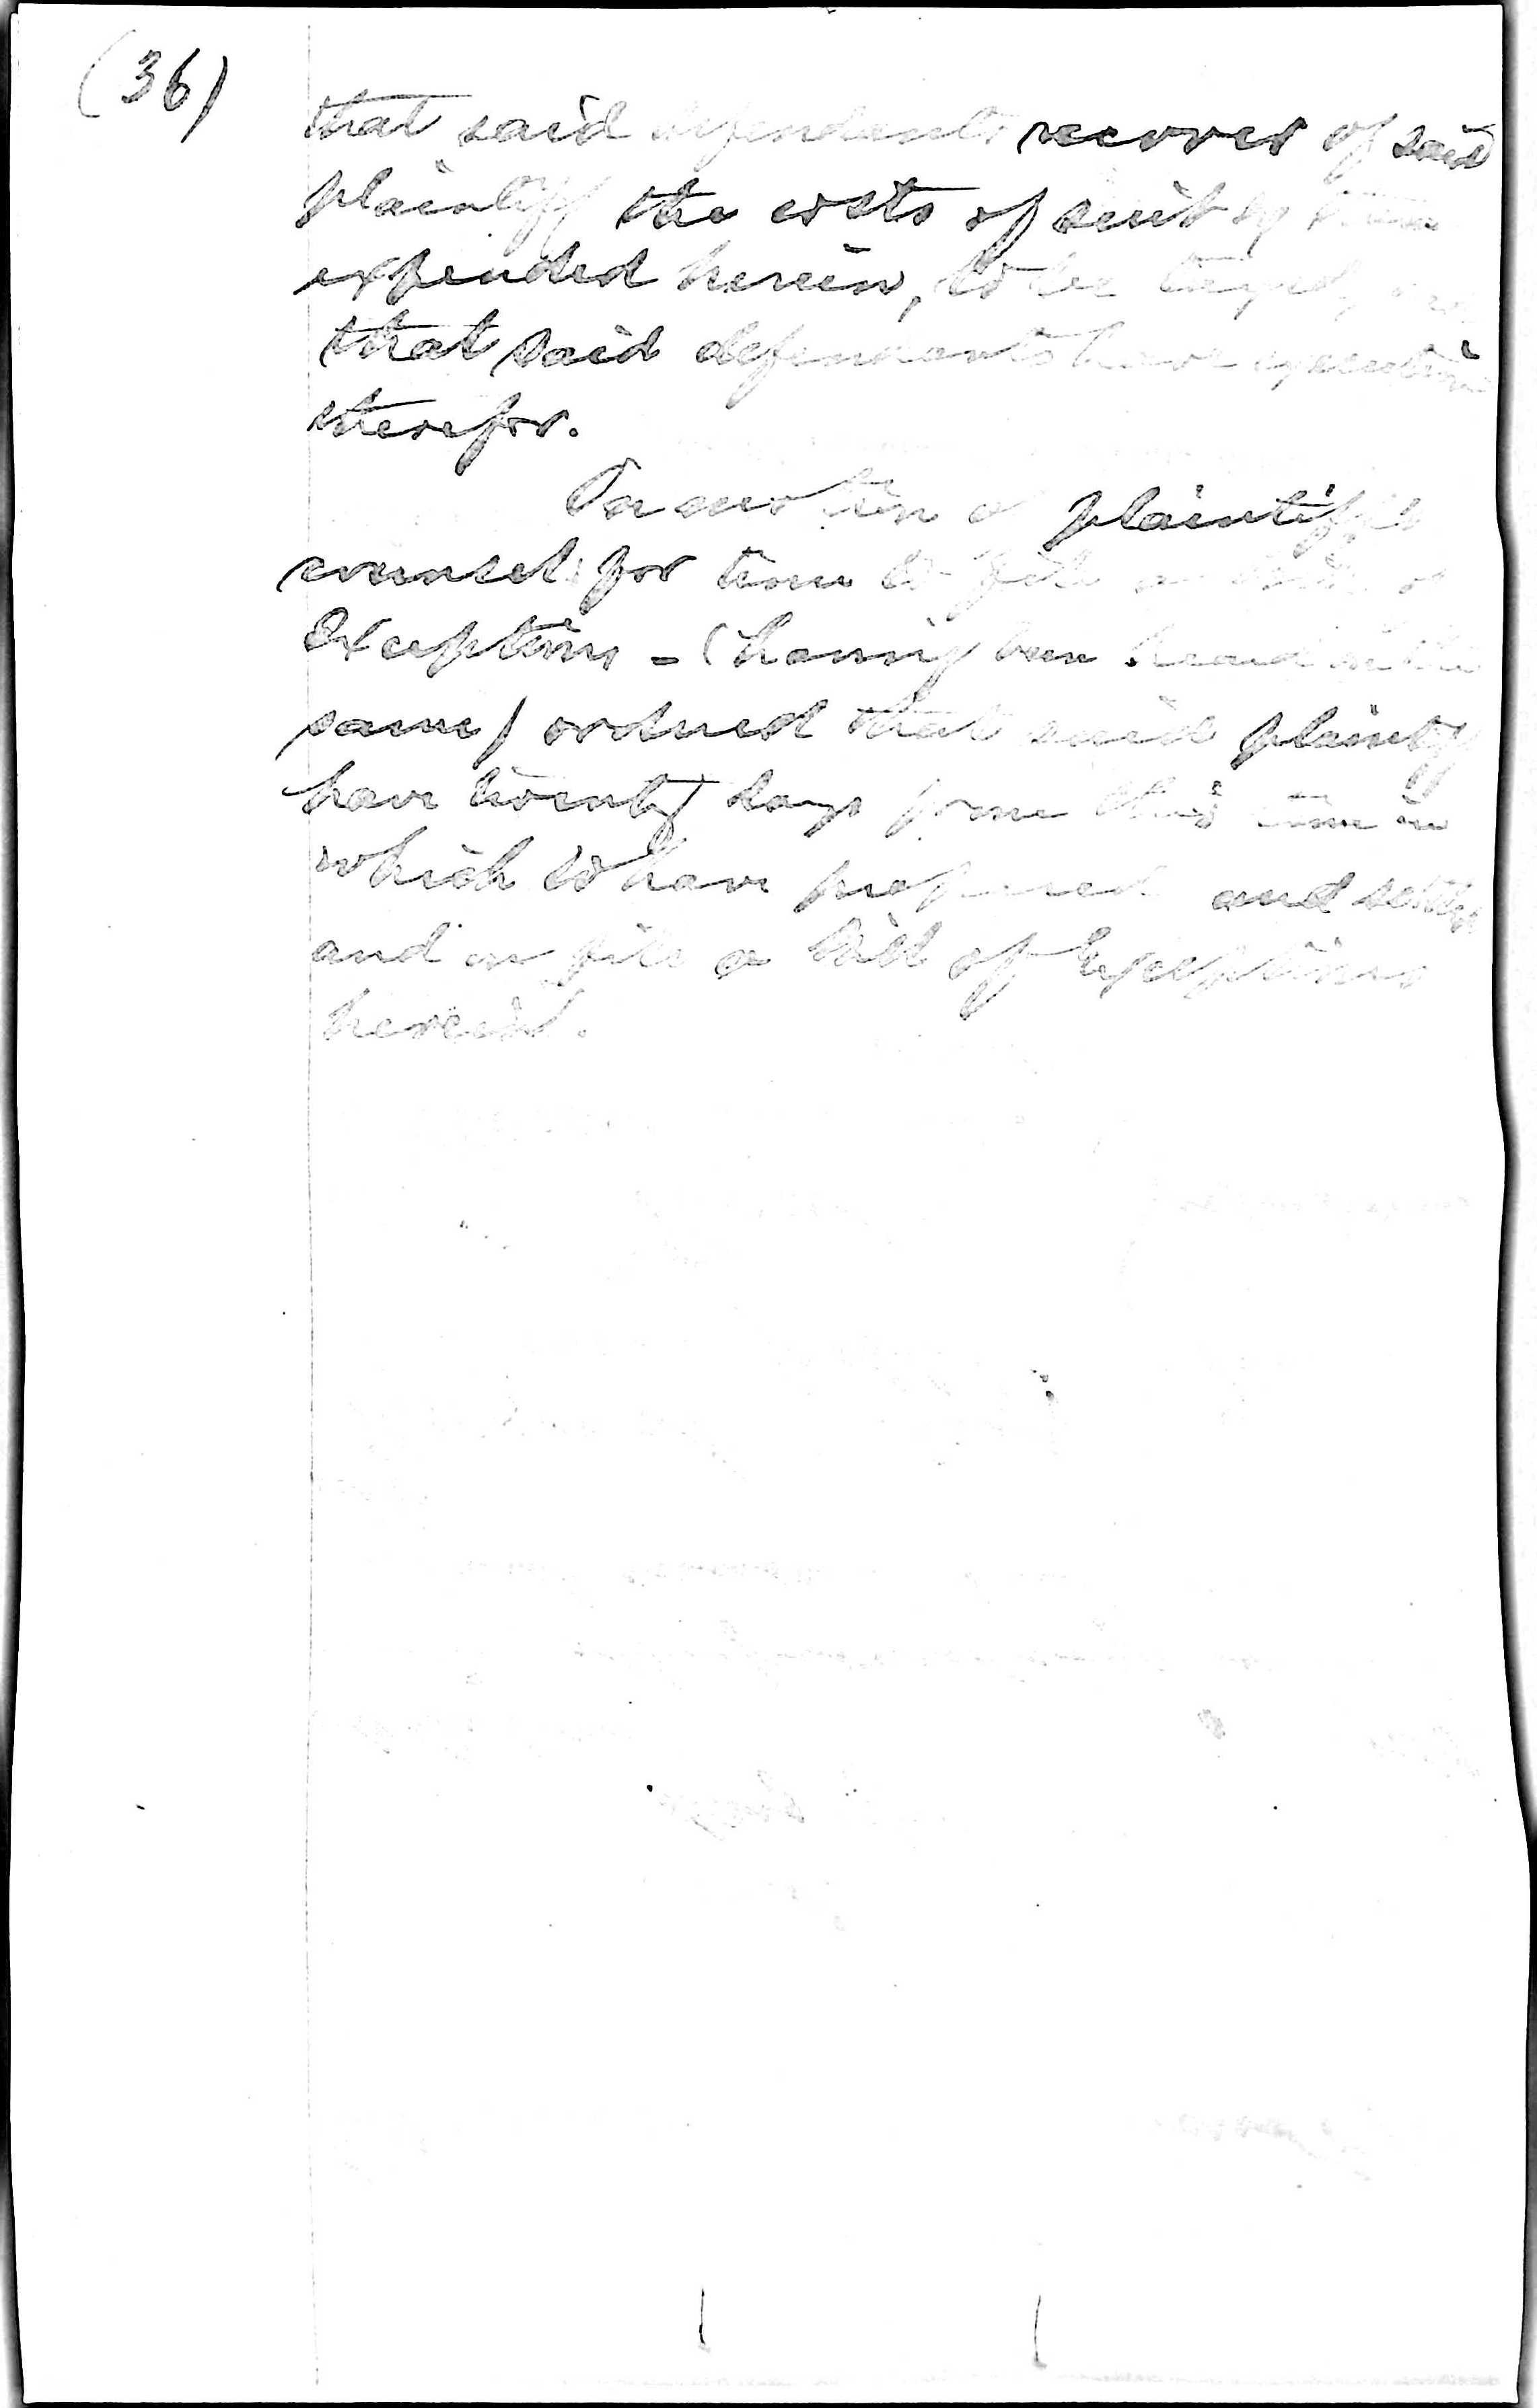 (36)
that said defendants recover of said
plaintiff the costs of suit by them
expended herein, to be taxed, and
that said defendants have execution
therefor.
On motion of plaintiff's
counsel for time to file a bill of
Exceptions - (having been heard on the
same) ordered that said plaintiff
have twenty days from this time in
which to have prepared and settled
and on file a bill of Exceptions
herein.